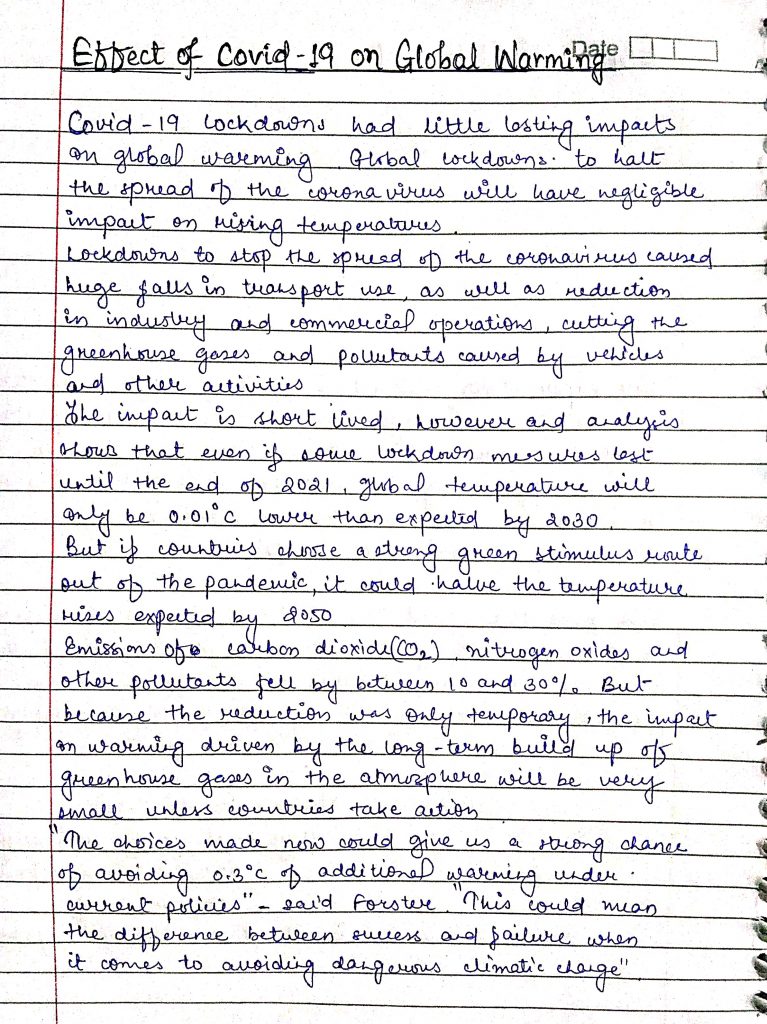 Effect of Covid-19 on Global Warming
Date
Covid-19 lockdowns had little lasting impacts
on global warming. Global lockdowns. to halt
the spread of the corona virus will have negligible
impact on rising temperatures.
Lockdowns to stop the spread of the coronavirus caused
huge falls in transport use, as well as reduction
in industry and commercial operations, cutting the
greenhouse gases and pollutants caused by vehicles
and other activities
The impact is short lived, however and analysis
shows that even if some lockdown mesures last
until the end of 2021, global temperature will
only be 0.01°C lower than expected by 2030.
But if countries choose a strong green stimulus route
out of the pandemic, it could halve the temperature
rises expected by 2050
Emissions of carbon dioxide(CO₂), nitrogen oxides and
other pollutants fell by between 10 and 30%. But
because the reduction was only temporary, the impact
on warming driven by the long-term build up of
greenhouse gases in the atmosphere will be very
small unless countries take action
"The choices made now could give us a strong chance
of avoiding 0.3°C of additional warming under.
current policies" - said Forster. "This could mean
the difference between success and failure when
it comes to avoiding dangerous climatic change"